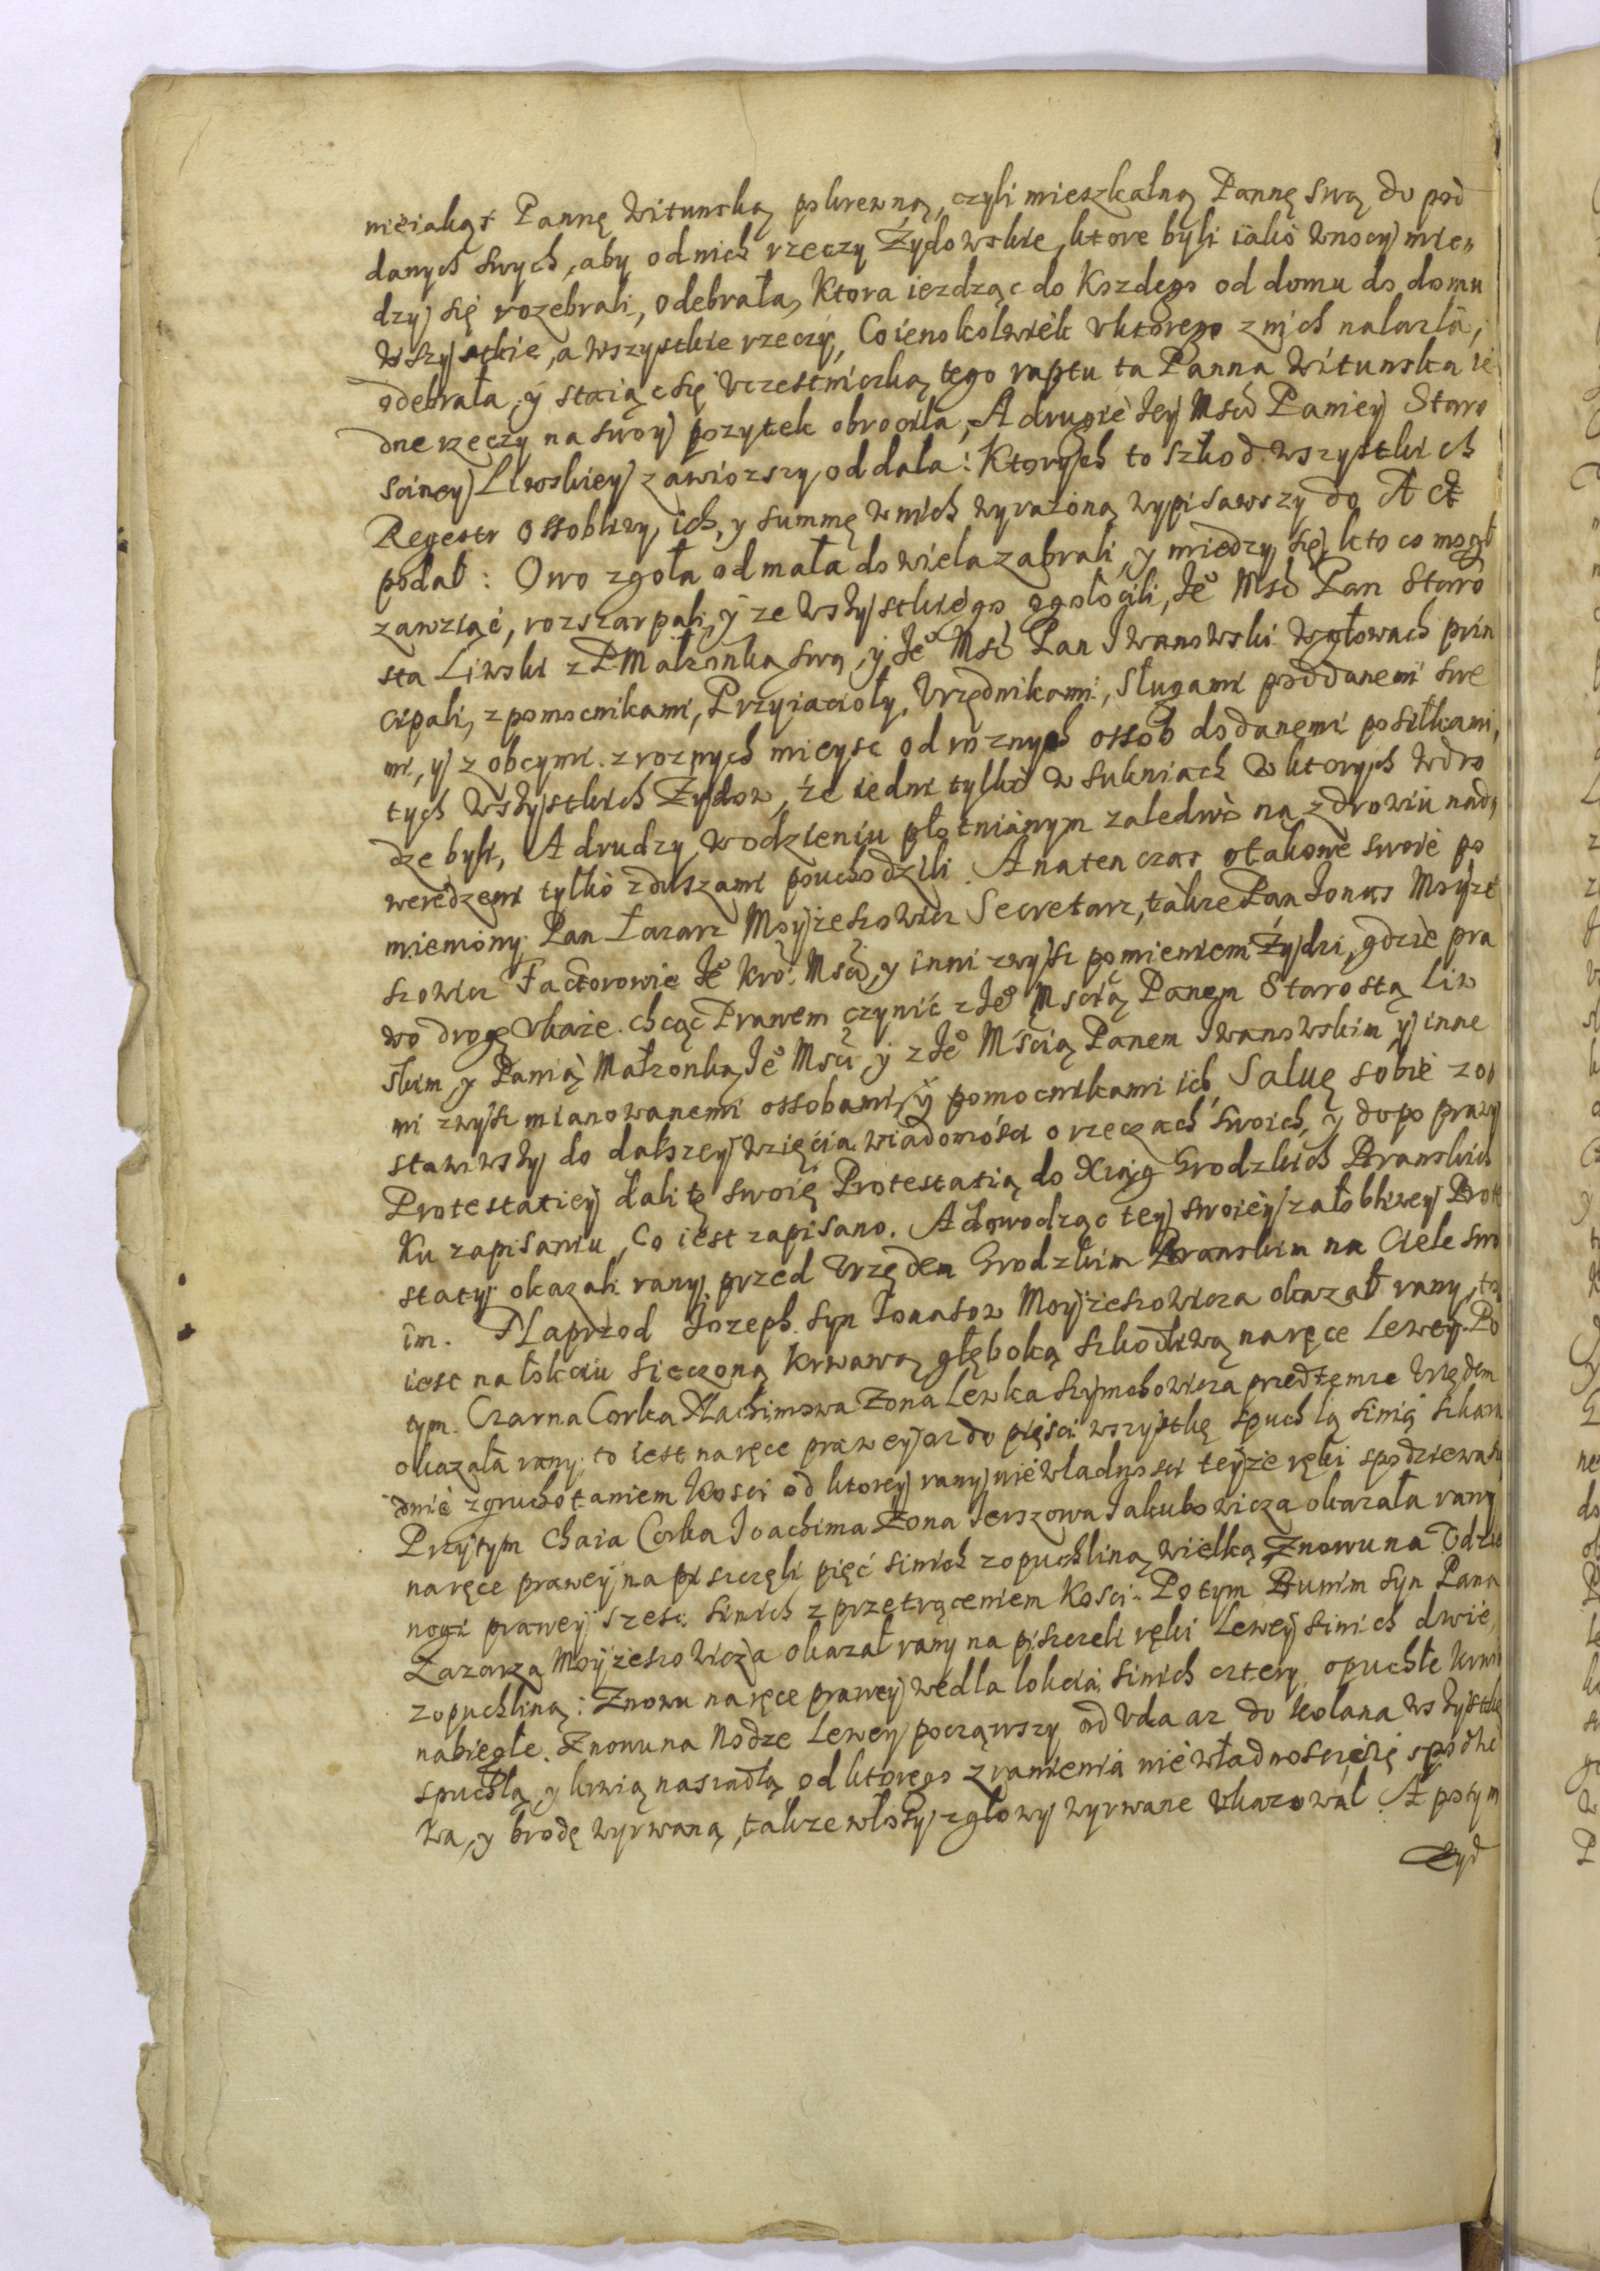 nieiakąś Pannę Witunską pokrewną, czyli mieszkalną Pannę swą do pod
danych swych, aby od nich rzeczy Żydowskie, ktore byli iako w nocy mie„
dzy się rozebrali, odebrała, Ktora iezdząc do Kozdego od domu do domu
wszystkie, a wszystkie rzeczy, Co ieno kolwiek v ktorego z nich nalazla,
odebrała, y staiąc się vczestniczką tego raptu ta Panna Witunska ie
dne rzeczy na swoy pozytek obrocila, A drugie Jey Mści Paniey Staro
sciney Liwskiey zawiozszy oddała: Ktorych to szkod wszystkich
Regestr ossobliwy, ich, y summę w nich wyrazoną wypisawszy do Act
podał: Owo zgoła od mała do wiela zabrali, y miedzy się, kto co mogł
zawziąć, rozszarpali, y ze wszystkiego ogołocili, Je° Mść Pan Staro
sta Liwski z P Małzonką swą, y Je° Mść Pan Iwanowski w głowach prin
cipali, z pomocnikami, Przyiacioły, Vrzędnikami, Sługami poddanemi swe
mi, y z obcymi z roznych mieysc od roznych ossob dodanemi posiłkami,
tych wszystkich Zydow, że iedni tylko w sukniach w ktorych w dro
dze byli, A drudzy w odzieniu płotnianym zaledwo na zdrowiu nad
weredzeni tylko z duszami pouchodzili. A na ten czas otakowe swoie po
mieniony Pan Łazarz Moyżeszowicz Secretarz, takze Pan Jonas Moyze
szowicz Factorowie Je° Kro: Mści, y inni zwysz pomienieni Żydzi, gdzie pra
wo drogę vkaże chcąc Prawem czynić z Je° Mścią Panem Starostą Liw
skim, y Panią Małzonką Je° Mści y z Je° Mścią Panem Iwanowskim y inne
mi zwysz mianowanemi ossobami y pomocnikami ich, Saluę sobie zo
stawiwszy do dalszey wzięcia wiadomości o rzeczach swoich, y do poprawy
Protestatiey dali tę swoię Protestatią do Xiąg Grodzkich Branskich
Ku zapisaniu, Co iest zapisano. A dowodząc tey swoiey załobliwey Prote
staty okazali rany przed Vrzędem Grodzkim Branskim na Ciele swo
im. Naprzod Jozeph syn Jonasow Moyżeszowicza okazał rany, to
iest na łokciu sieczoną krwawą głęboką szkodliwą na ręce Lewey. Po
tym. Czarna Corka Nachimowa Zona Lewka Szymchowicza przed temze Vrzędem
okazała rany to iest na ręce prawey az do pięści wszystkę spuchłą sinią szkara
dnie zgruchotaniem Kości od ktorey rany niewładnosci teyże ręki spodziewa się
Przytym Chaia Corka Joachima Zona Jerszowa Jakubowicza okazała rany
na ręce prawey na piszczęli pięć sinich z opuchliną wielką Znowu na Vdzie
nogi prawey sześć sinich z przetrąceniem Kosci. Potym Bunim syn Pana
Łazarza Moyżeszowicza okazał rany na piszczeli ręki Lewey sinich dwie
z opuchliną: Znowu na ręce prawey wedla lokcia sinich cztery opuchłe krwią
nabiegłe. Znowu na Nodze Lewey począwszy od Vda az do kolana wszystkę
spuchłą y krwią naszadłą od ktorego zranienia niewładnosci się spodzie
wa, y brodę wyrwaną, takze włosy z głowy wyrwane vkazował. A potym
Zyd